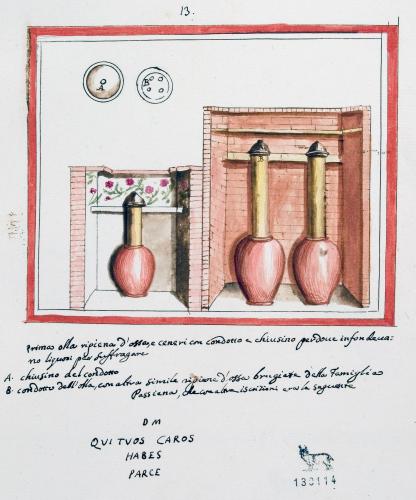 13.
A
B
B
Prima olla ripiena d'ossa, e ceneri con condotto e chiusino per dove infondeua=
no liquori per suffragare
A. chiusino del condotto
B. condotto dell'olla, con altra simile ripiena d'ossa brugiate della Famiglia
Passiena, che con altre iscrizioni era la seguente
D M
QUI TVOS CAROS
HABES
PARCE
130114